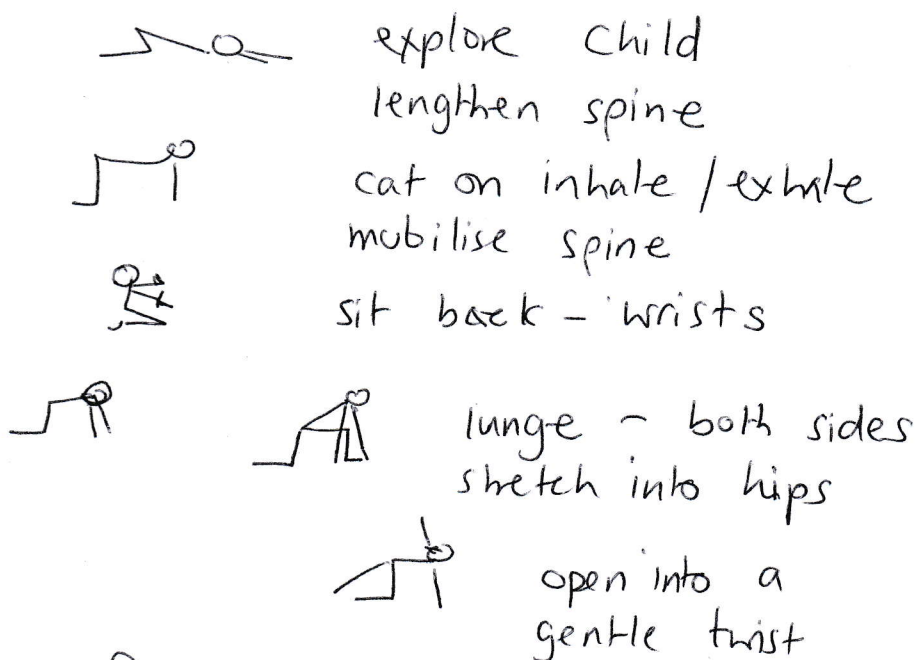 explore Child
lengthen spine
cat on inhale / exhale
mobilise spine
sit back - wrists
lunge - both sides
stretch into hips
open into a
gentle twist